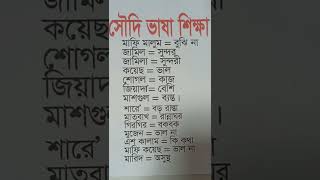 সৌদি ভাষা শিক্ষা
মাফি মালুম = বুঝি না
জামিল = সুন্দর
জামিলা = সুন্দরী
কয়েছ = ভাল
শোগল = কাজ
জিয়াদা = বেশি
মাশগুল = ব্যস্ত।
শারে' = বড় রাস্তা
মাতবাখ = রান্নাঘর
গিরগির = বকবক
মুজেন = ভাল না
এশ কালাম = কি কথা
মাফি কয়েছ = ভাল না
মারিদ = অসুস্থ